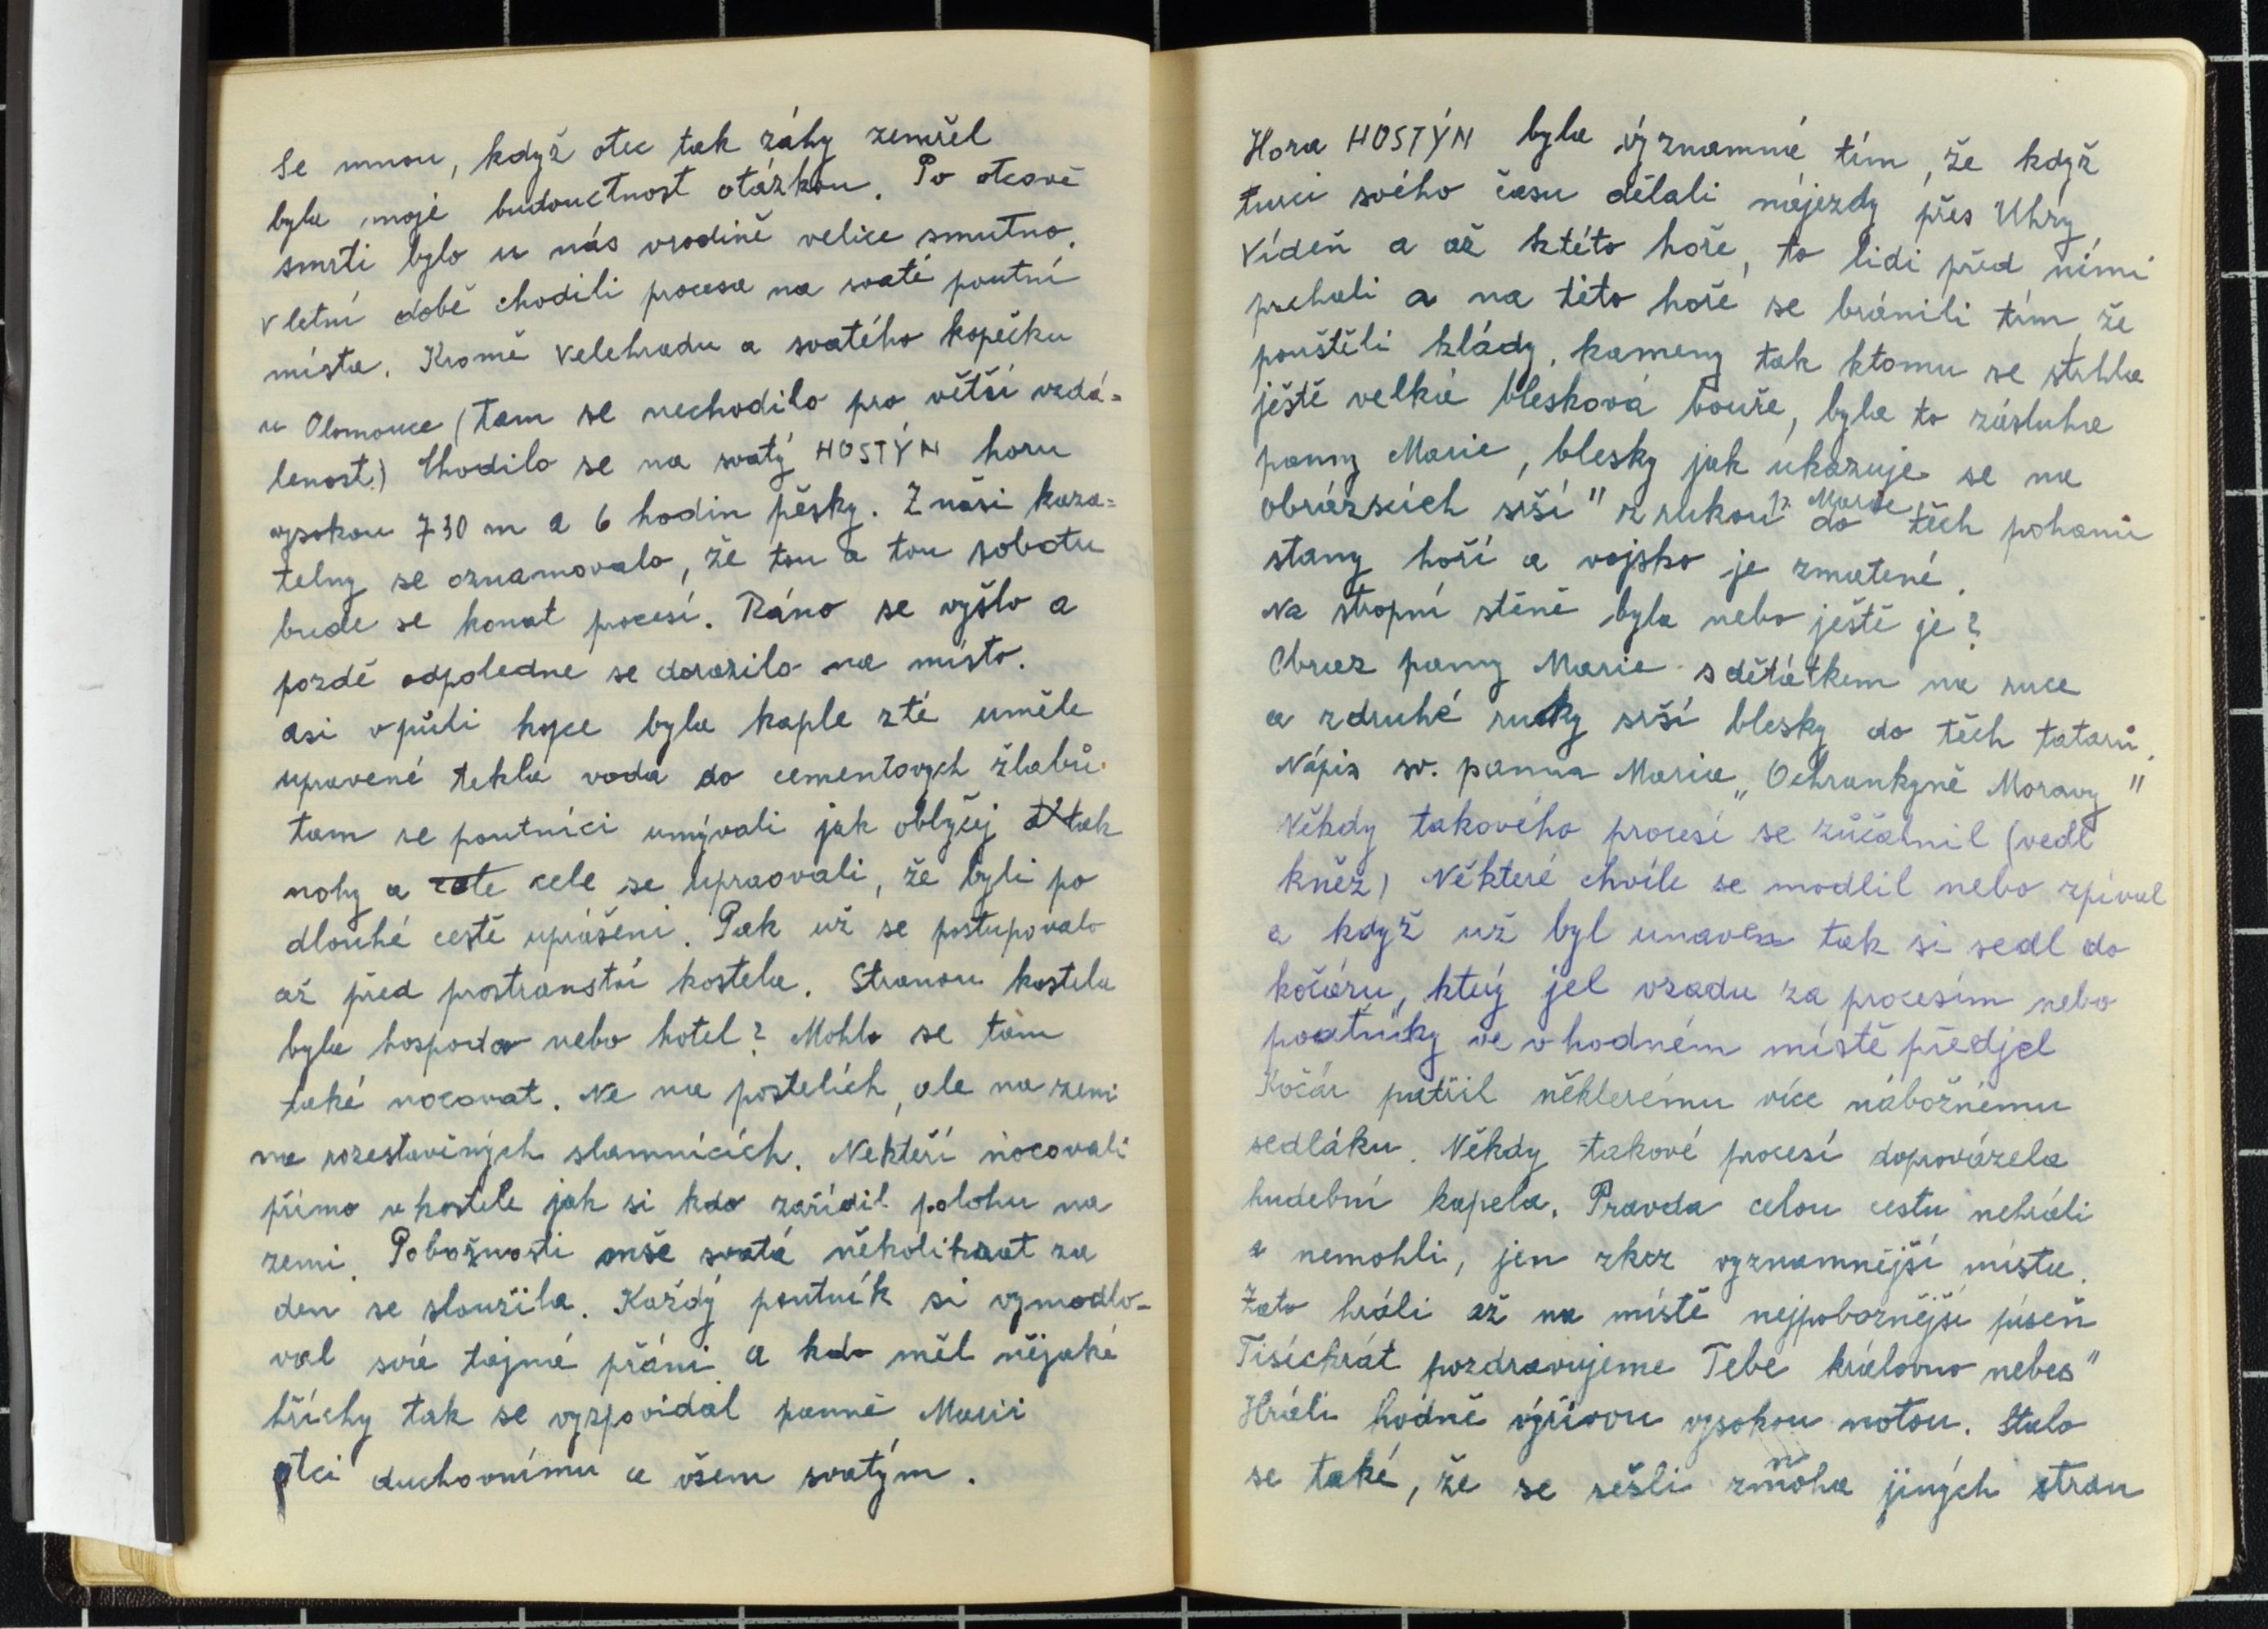 Se mnou, když otec tak záhy zemřel
byla moje budouctnost otázkou. Po otcově
smrti bylo u nás vrodině velice smutno.
v letní době chodili procesa na svaté poutní
místa. Kromě Velehradu a svatého kopečku
u Olomouce (tam se nechodilo pro větší vzdá=
lenost.) Chodilo se na svatý HOSTÝN horu
vysokou 730 m a 6 hodin pěsky. Z naši kaza=
telny se oznamovalo, že tou a tou sobotu
bude se konat procesí. Ráno se vyšlo a
pozdě odpoledne se dorazilo na místo.
asi v půli kopce byla kaple zté uměle
upravené tekla voda do cementových žlabů.
tam se poutníci umývali jak obličej a tak
nohy a cele se upraovali, že byli po
dlouhé cestě uprášeni. Pak už se postupovalo
až před prostranství kostela. Stranou kostela
byla hospoda nebo hotel? Mohlo se tam
také nocovat. Ne na postelích, ale na zemi
na rozestavěných slamnících. Nekteří nocovali
přimo v kostele jak si kdo zařídil polohu na
zemi. Pobožnosti mše svatá několikrat za
den se sloužila. Každý poutník si vymodlo-
val své tajmé přáni a kdo měl nějaké
hříchy tak se vyzpovidal panně Marii
otci duchovnímu a všem svatým.
Hora HOSTÝN byla významná tím, že když
turci svého času dělali nájezdy přes Uhry
Vídeň a až ktéto hoře, to lidi před ními
prchali a na této hoře se bránili tím, že
pouštěli klády, kameny tak ktomu se strhla
ještě velká blesková bouře, byla to zásluha
panny Marie, blesky jak ukazuje se na
obrázcích srší" z rukou p. Marie do těch pohanů
stany hoří a vojsko je zmatené.
Na stropní stěně byla nebo ještě je?
Obraz panny Marie s dětátkem na ruce
a zdruhé ruky srší blesky do těch tatarů.
Nápis sv. panna Maria „Ochrankyně Moravy"
Někdy takového procesí se zůčatnil (vedl
kněz) Některé chvíle se modlil nebo zpíval
a když už byl unaven tak si sedl do
kočáru, který jel vzadu za procesím nebo
poutníky ve vhodném místě předjel
Kočár patřil některému více nábožnému
sedláku. Někdy takové procesí doprovázela
hudební kapela. Pravda celou cestu nehráli
a nemohli, jen zkrz vyznamnější místa.
Zato hráli až na místě nejpoboznější píseň
Tisíckrát pozdravujeme Tebe královno nebes"
Hráli hodně výšivou vysokou notou. Stalo
se také, že se sešli zmnoha jiných stran